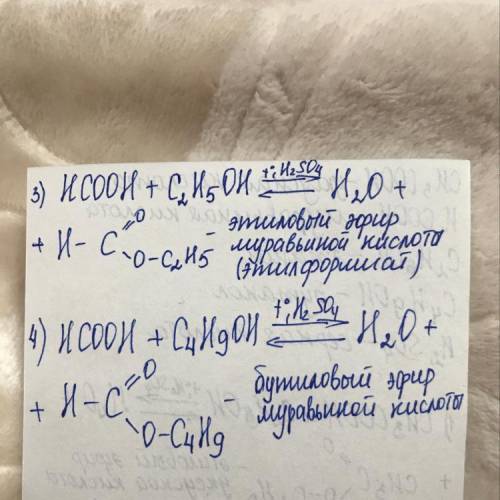 3) HCOOH + C₂H₅OH ⇌ t°, H₂SO₄ H₂O +
+ H-C =O O-C₂H₅ - этиловый эфир
муравьиной кислоты
(этилформиат)
4) HCOOH + C₄H₉OH ⇌ t°, H₂SO₄ H₂O +
+ H-C =O O-C₄H₉ - бутиловый эфир
муравьиной кислоты